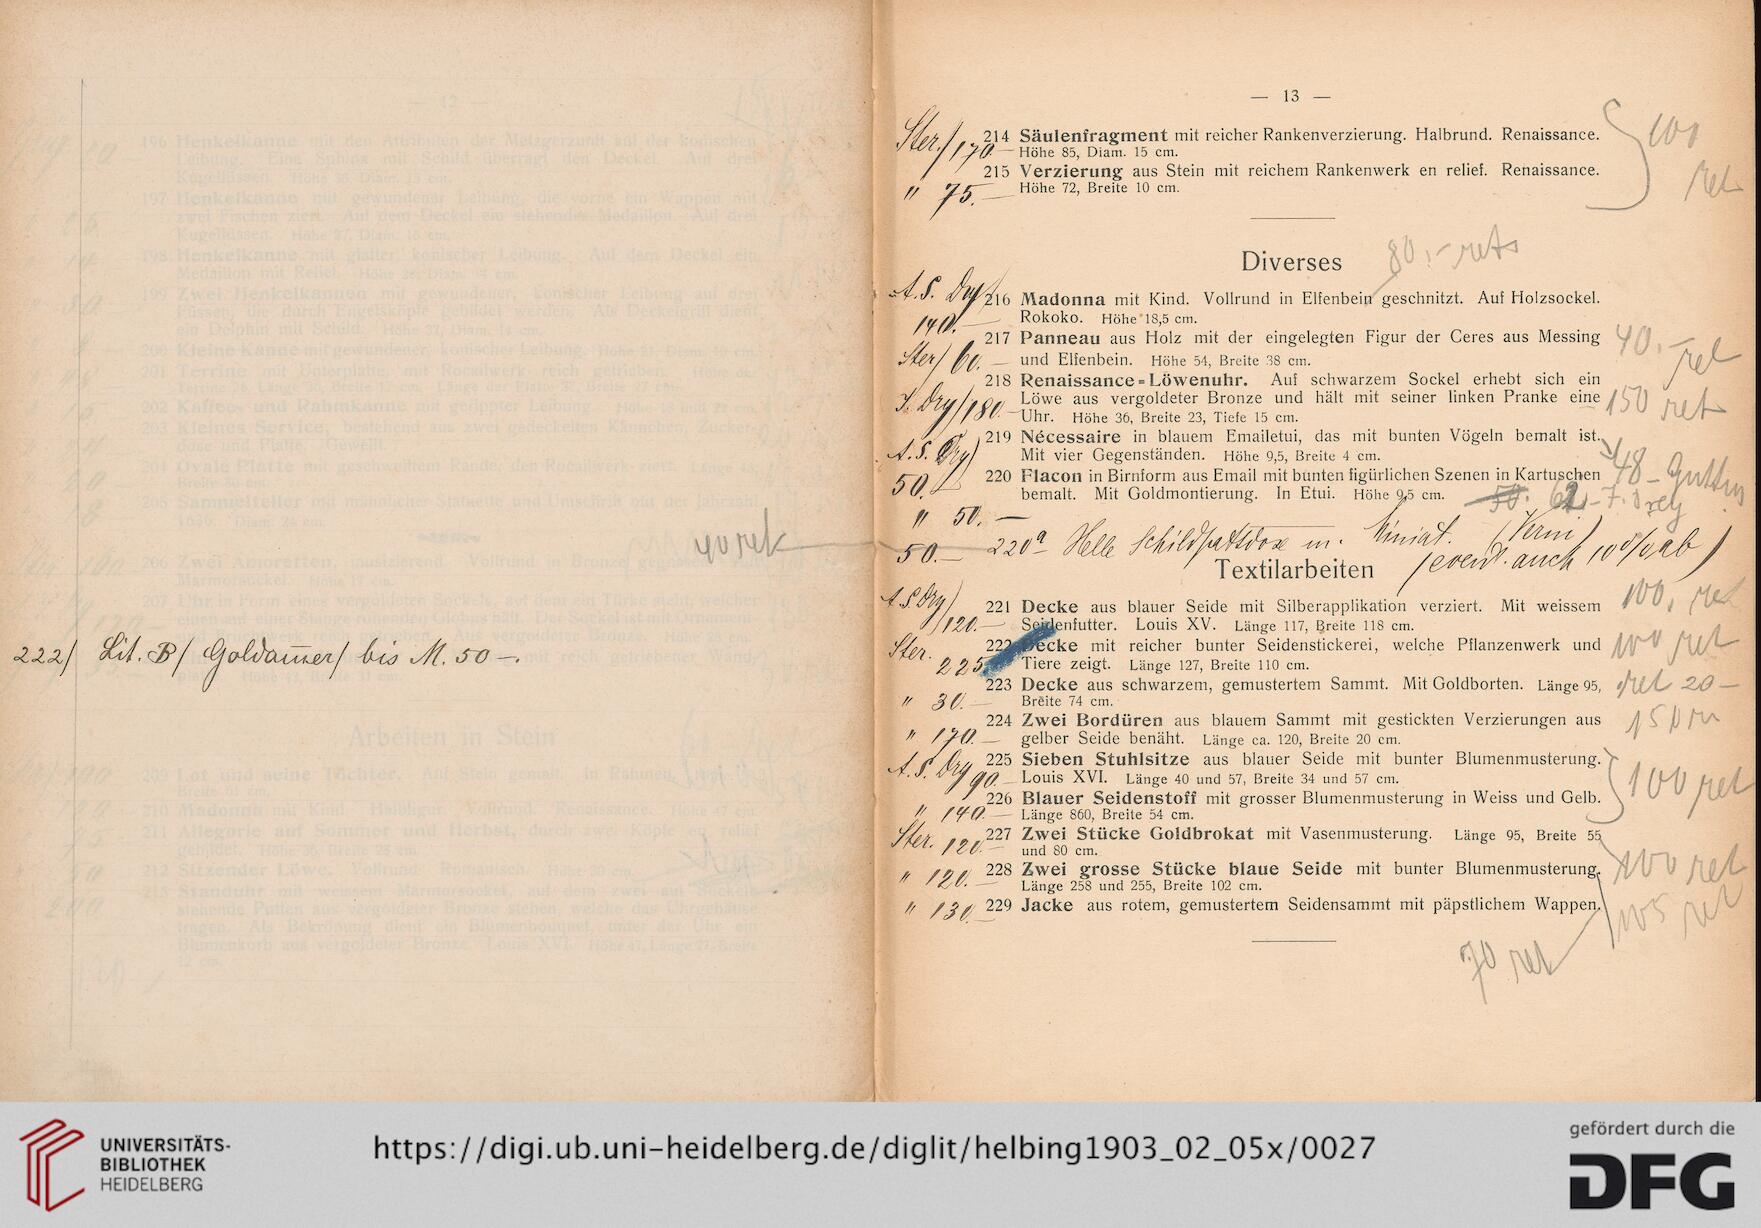 40 ret
222/ Lit. B/ Goldam̄er/ bis M. 50 –.
— 13 —
Ster./ 170.— 214 Säulenfragment mit reicher Rankenverzierung. Halbrund. Renaissance.
Höhe 85, Diam. 15 cm.
100 ret
215 Verzierung aus Stein mit reichem Rankenwerk en relief. Renaissance.
" 75.— Höhe 72, Breite 10 cm.
Diverses
80.- ret
A. S. Dry/ 140.— 216 Madonna mit Kind. Vollrund in Elfenbein geschnitzt. Auf Holzsockel.
Rokoko. Höhe 18,5 cm.
217 Panneau aus Holz mit der eingelegten Figur der Ceres aus Messing
Ster/ 60.— und Elfenbein. Höhe 54, Breite 38 cm.
40.- ret
218 Renaissance=Löwenuhr. Auf schwarzem Sockel erhebt sich ein
Löwe aus vergoldeter Bronze und hält mit seiner linken Pranke eine
Dry/180— Uhr. Höhe 36, Breite 23, Tiefe 15 cm.
150 ret
A. S. Dry) 219 Nécessaire in blauem Emailetui, das mit bunten Vögeln bemalt ist.
Mit vier Gegenständen. Höhe 9,5, Breite 4 cm.
48 –
50.— 220 Flacon in Birnform aus Email mit bunten figürlichen Szenen in Kartuschen
bemalt. Mit Goldmontierung. In Etui. Höhe 9,5 cm.
50.
" 50.—
50.— 220a Helle Schildpattdose m. Miniat.
(event. auch 10% ab)
Textilarbeiten
A. S. Dry/ 221 Decke aus blauer Seide mit Silberapplikation verziert. Mit weissem
120.— Seidenfutter. Louis XV. Länge 117, Breite 118 cm.
100. ret
Ster. 222 Decke mit reicher bunter Seidenstickerei, welche Pflanzenwerk und
225 Tiere zeigt. Länge 127, Breite 110 cm.
100 ret
223 Decke aus schwarzem, gemustertem Sammt. Mit Goldborten. Länge 95,
" 30.— Breite 74 cm.
ret 20 –
224 Zwei Bordüren aus blauem Sammt mit gestickten Verzierungen aus
" 170.— gelber Seide benäht. Länge ca. 120, Breite 20 cm.
150
A. S. Dry 225 Sieben Stuhlsitze aus blauer Seide mit bunter Blumenmusterung.
90.— Louis XVI. Länge 40 und 57, Breite 34 und 57 cm.
100 ret
226 Blauer Seidenstoff mit grosser Blumenmusterung in Weiss und Gelb.
" 140.— Länge 860, Breite 54 cm.
Ster. 120.— 227 Zwei Stücke Goldbrokat mit Vasenmusterung. Länge 95, Breite 55
und 80 cm.
" 120.— 228 Zwei grosse Stücke blaue Seide mit bunter Blumenmusterung.
Länge 258 und 255, Breite 102 cm.
100 ret
" 130.— 229 Jacke aus rotem, gemustertem Seidensammt mit päpstlichem Wappen.
105 ret
70 ret
UNIVERSITÄTS-
BIBLIOTHEK
HEIDELBERG
https://digi.ub.uni-heidelberg.de/diglit/helbing1903_02_05x/0027
gefördert durch die
DFG